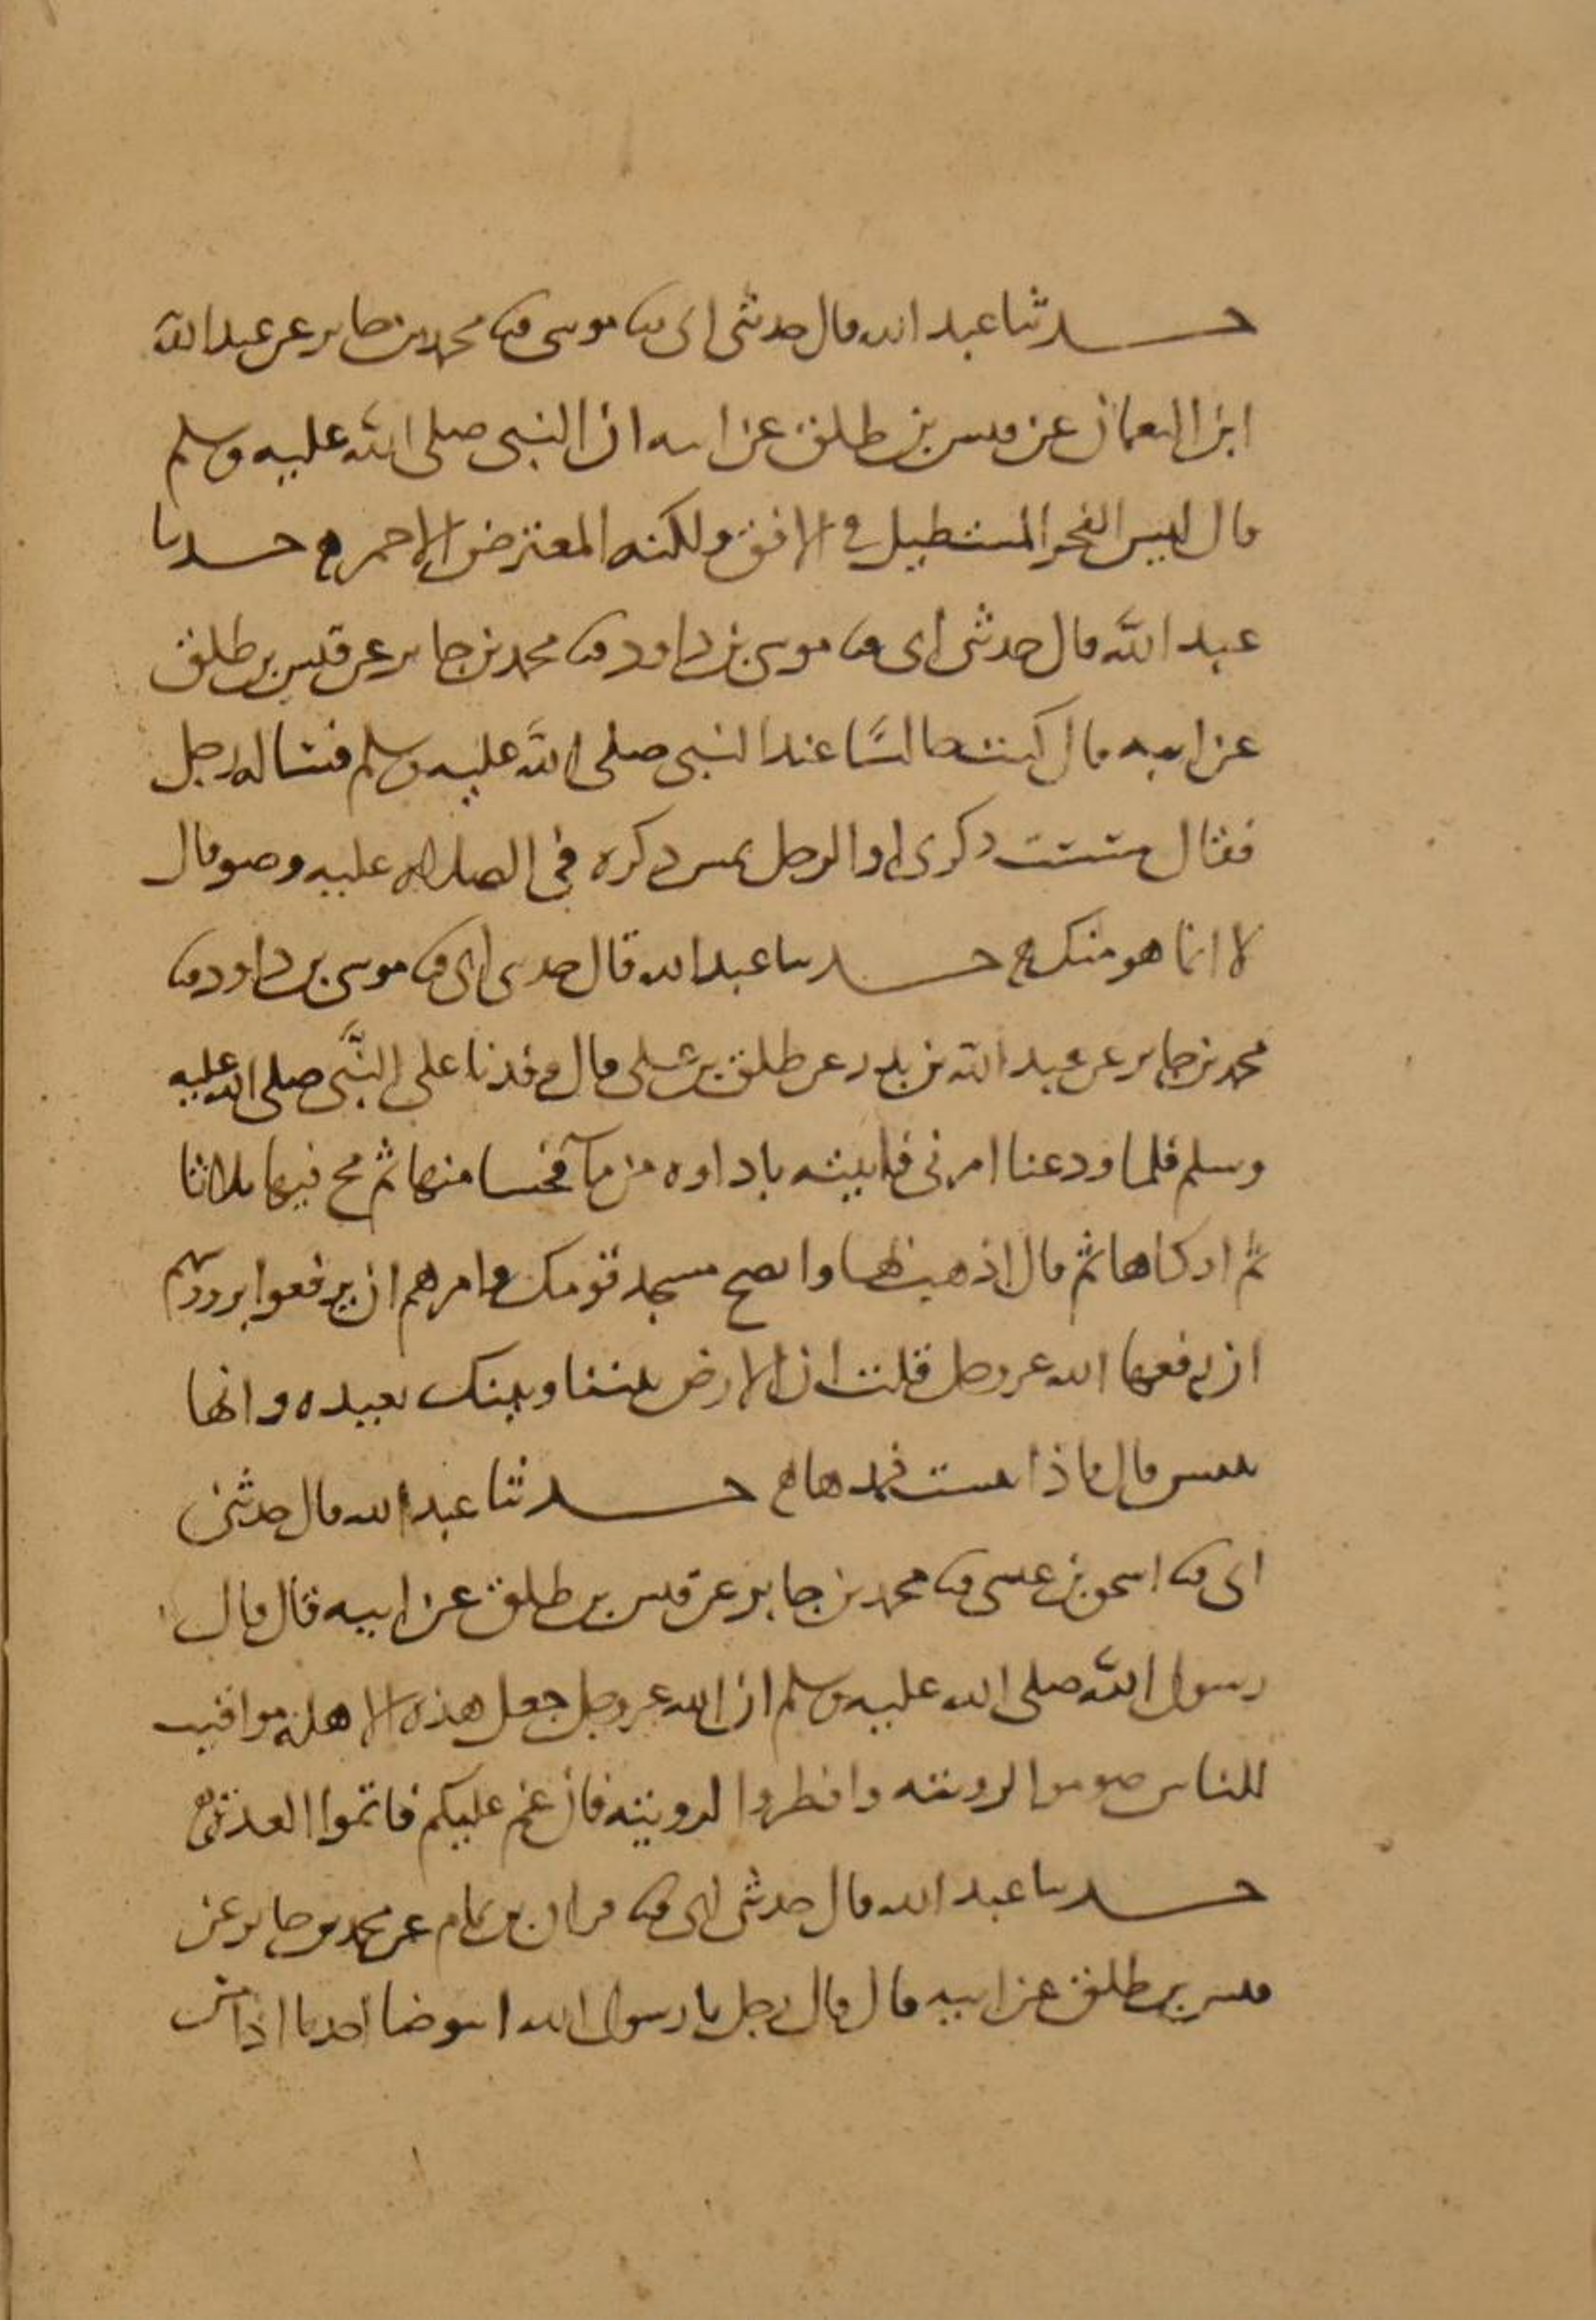 حدثنا عبد الله قال حدثني ابي ثنا موسى ثنا محمد بن جابر عن عبد الله
ابن النعمان عن قيس بن طلق عن ابيه ان النبي صلى الله عليه وسلم
قال ليس الفجر المستطيل في الافق ولكنه المعترض الاحمر ه حدثنا
عبد الله قال حدثني ابي ثنا موسى بن داود ثنا محمد بن جابر عن قيس بن طلق
عن ابيه قال كنت جالسًا عند النبي صلى الله عليه وسلم فساله رجل
فقال مسست ذكري او الرجل يمس ذكره في الصلاه عليه وضو قال
لا انما هو منك ه حدثنا عبد الله قال حدثني ابي ثنا موسى بن داود ثنا
محمد بن جابر عن عبد الله بن بدر عن طلق بن علي قال وفدنا على النبي صلى الله عليه
وسلم فلما ودعنا امرني فاتيته باداوه من مآ فحسا منها ثم مج فيها ثلاثا
ثم اوكاها ثم قال اذهب بها وانضح مسجد قومك وامرهم ان يرفعوا برووسهم
ان رفعها الله عز وجل قلت ان الارض بيننا وبينك بعيده وانها
تيبس قال فاذا يبست فمدها ه حدثنا عبد الله قال حدثني
ابي ثنا اسحق بن عيسى ثنا محمد بن جابر عن قيس بن طلق عن ابيه قال قال
رسول الله صلى الله عليه وسلم ان الله عز وجل جعل هذه الاهله مواقيت
للناس صوموا لرويته وافطروا لرويته فان غم عليكم فاتموا العدة ه
حدثنا عبد الله قال حدثني ابي ثنا قران بن تمام عن محمد بن جابر عن
قيس بن طلق عن ابيه قال قال رجل يا رسول الله ايتوضا احدنا اذا مس